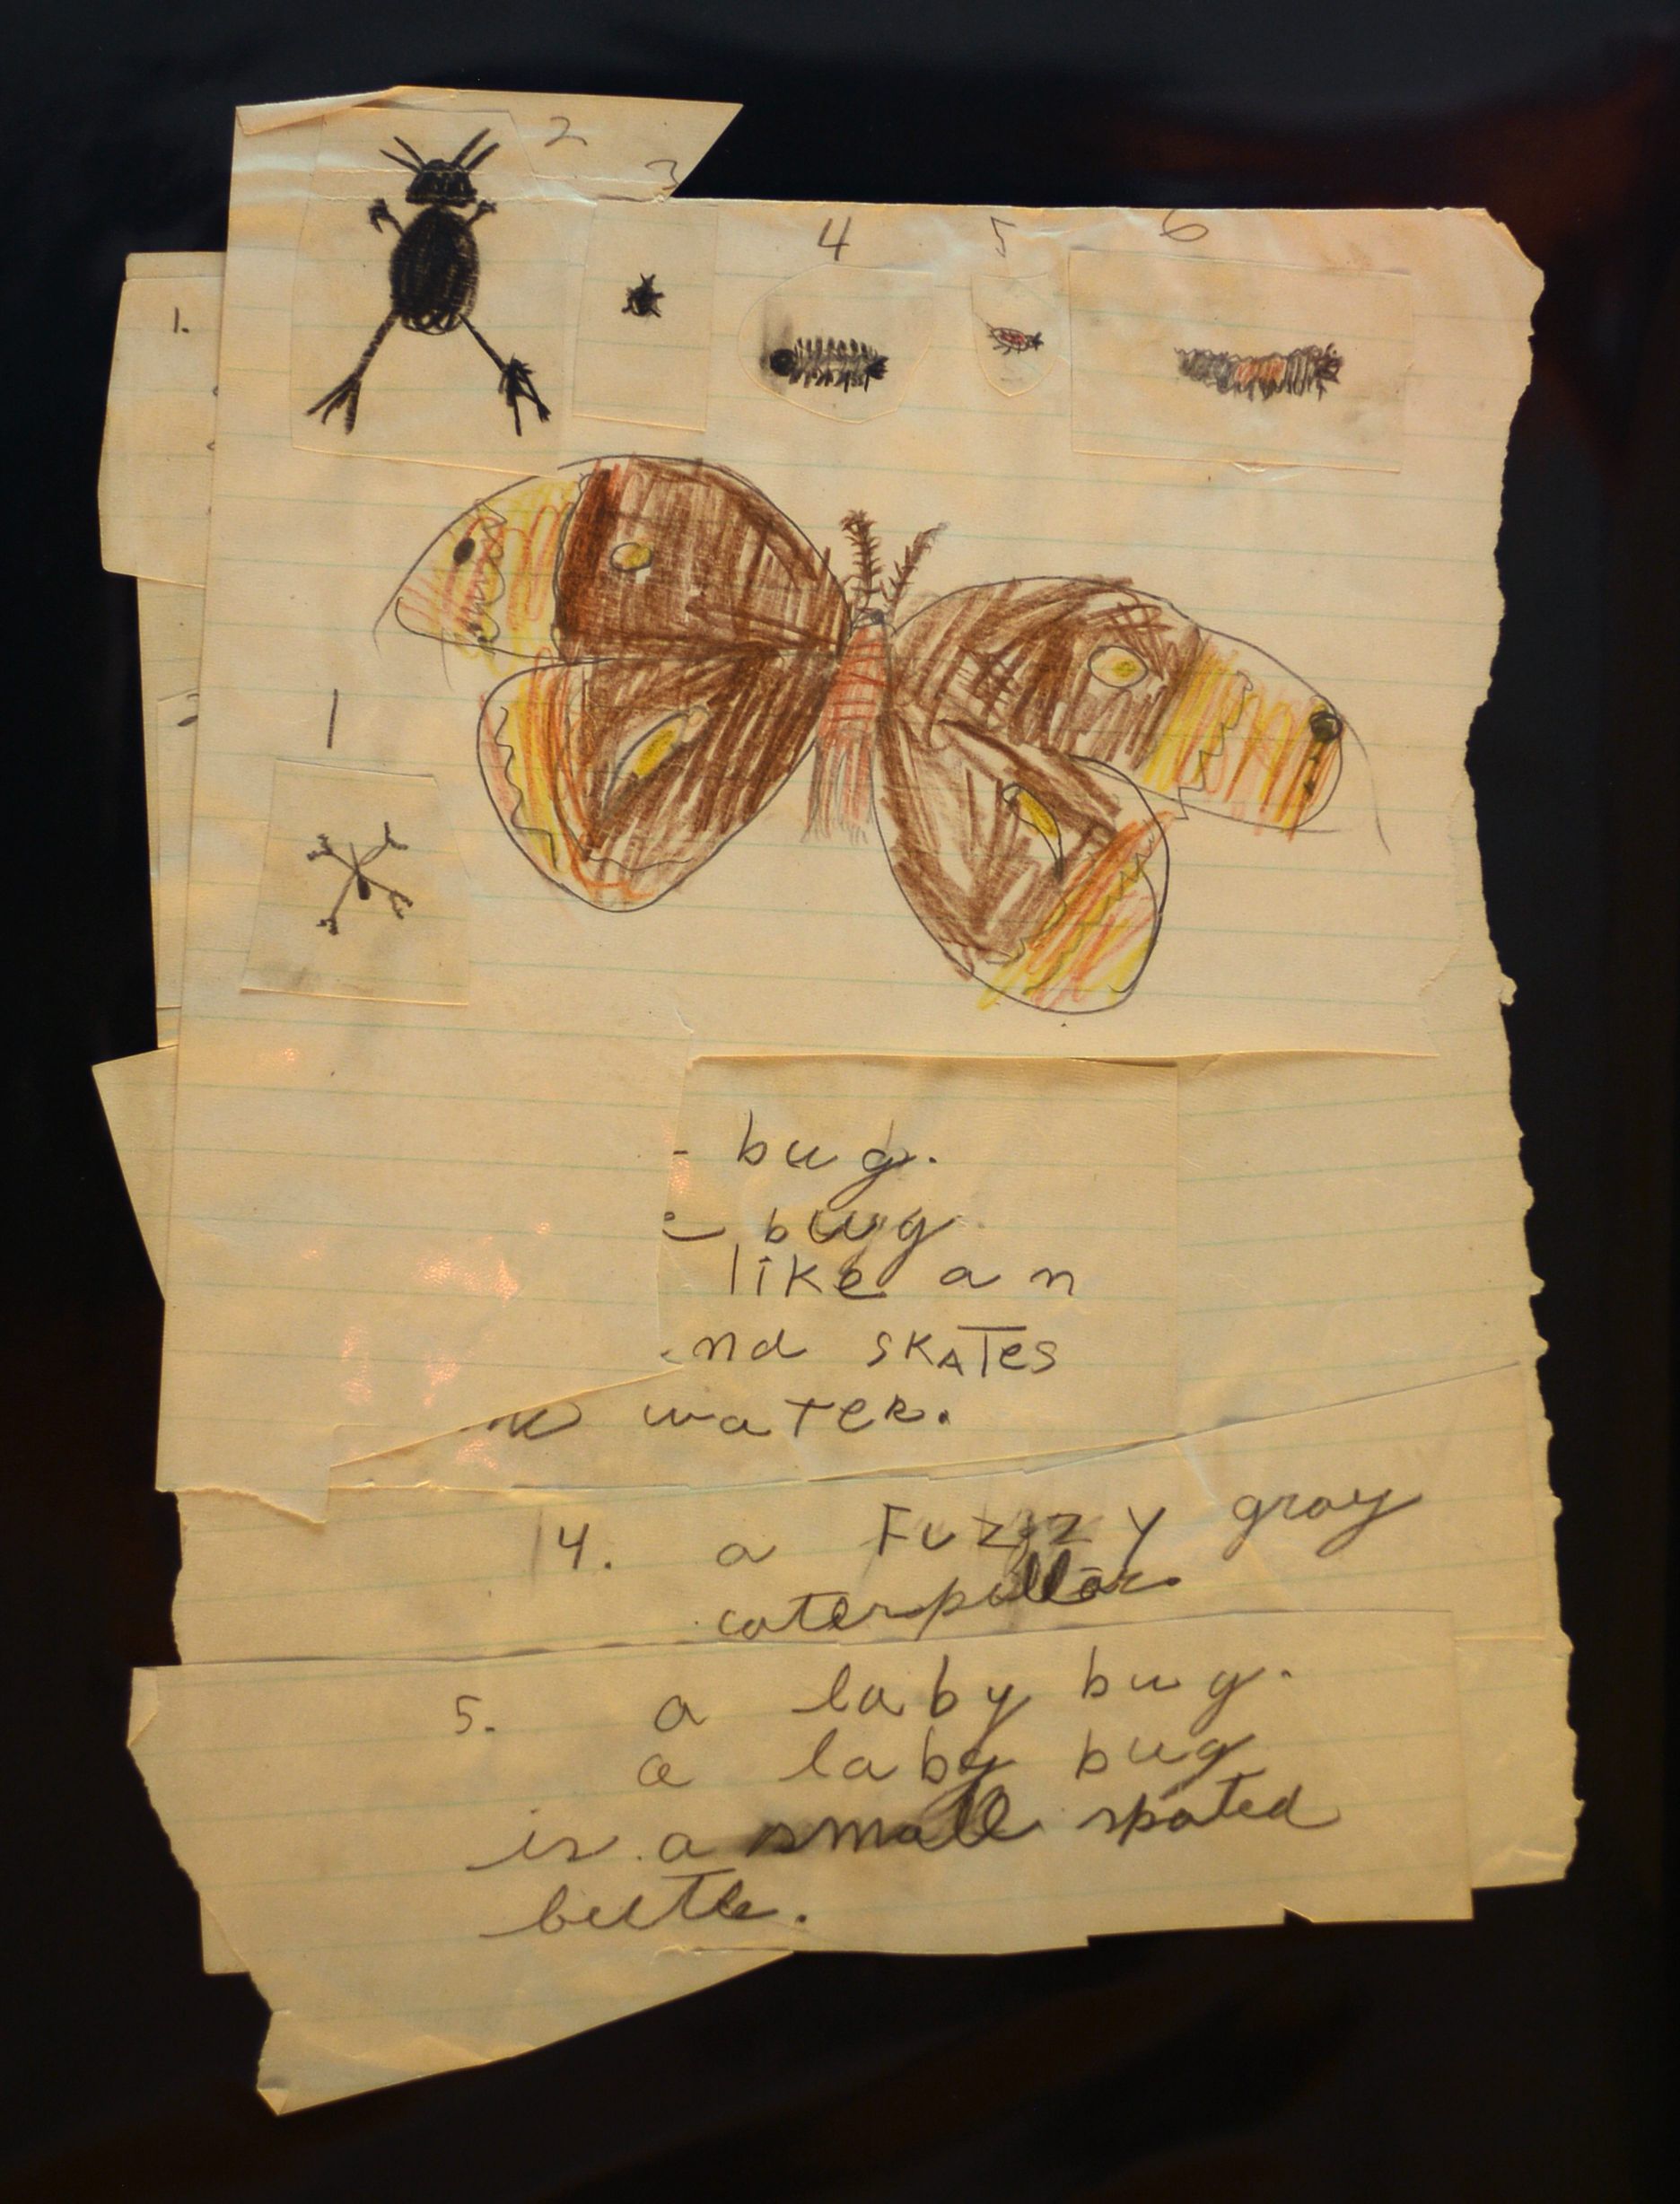 2
3
4
5
6
1.
1
- bug.
bug
like an
nd skates
water.
4. a Fuzzy gray
caterpillar
5. a laby bug.
a laby bug
is a small spoted
beetle.